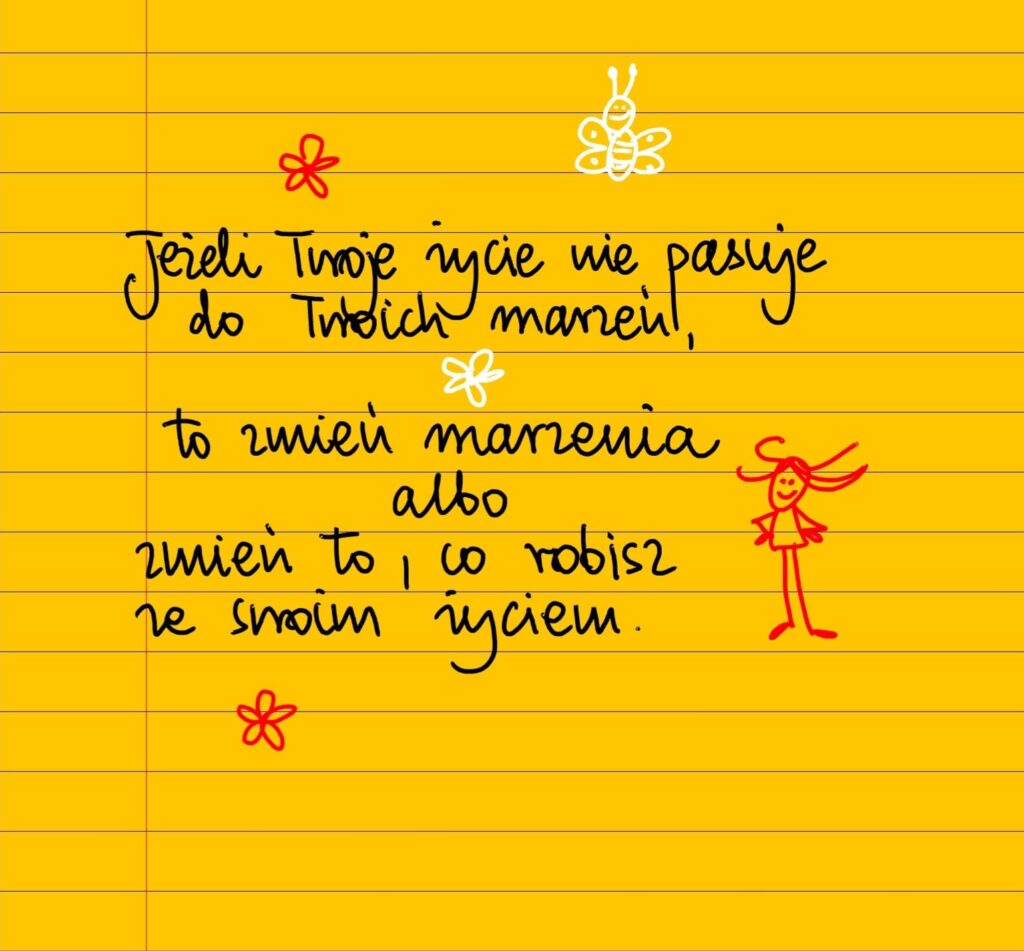 Jeżeli Twoje życie nie pasuje
do Twoich marzeń,
to zmień marzenia
albo
zmień to, co robisz
ze swoim życiem.